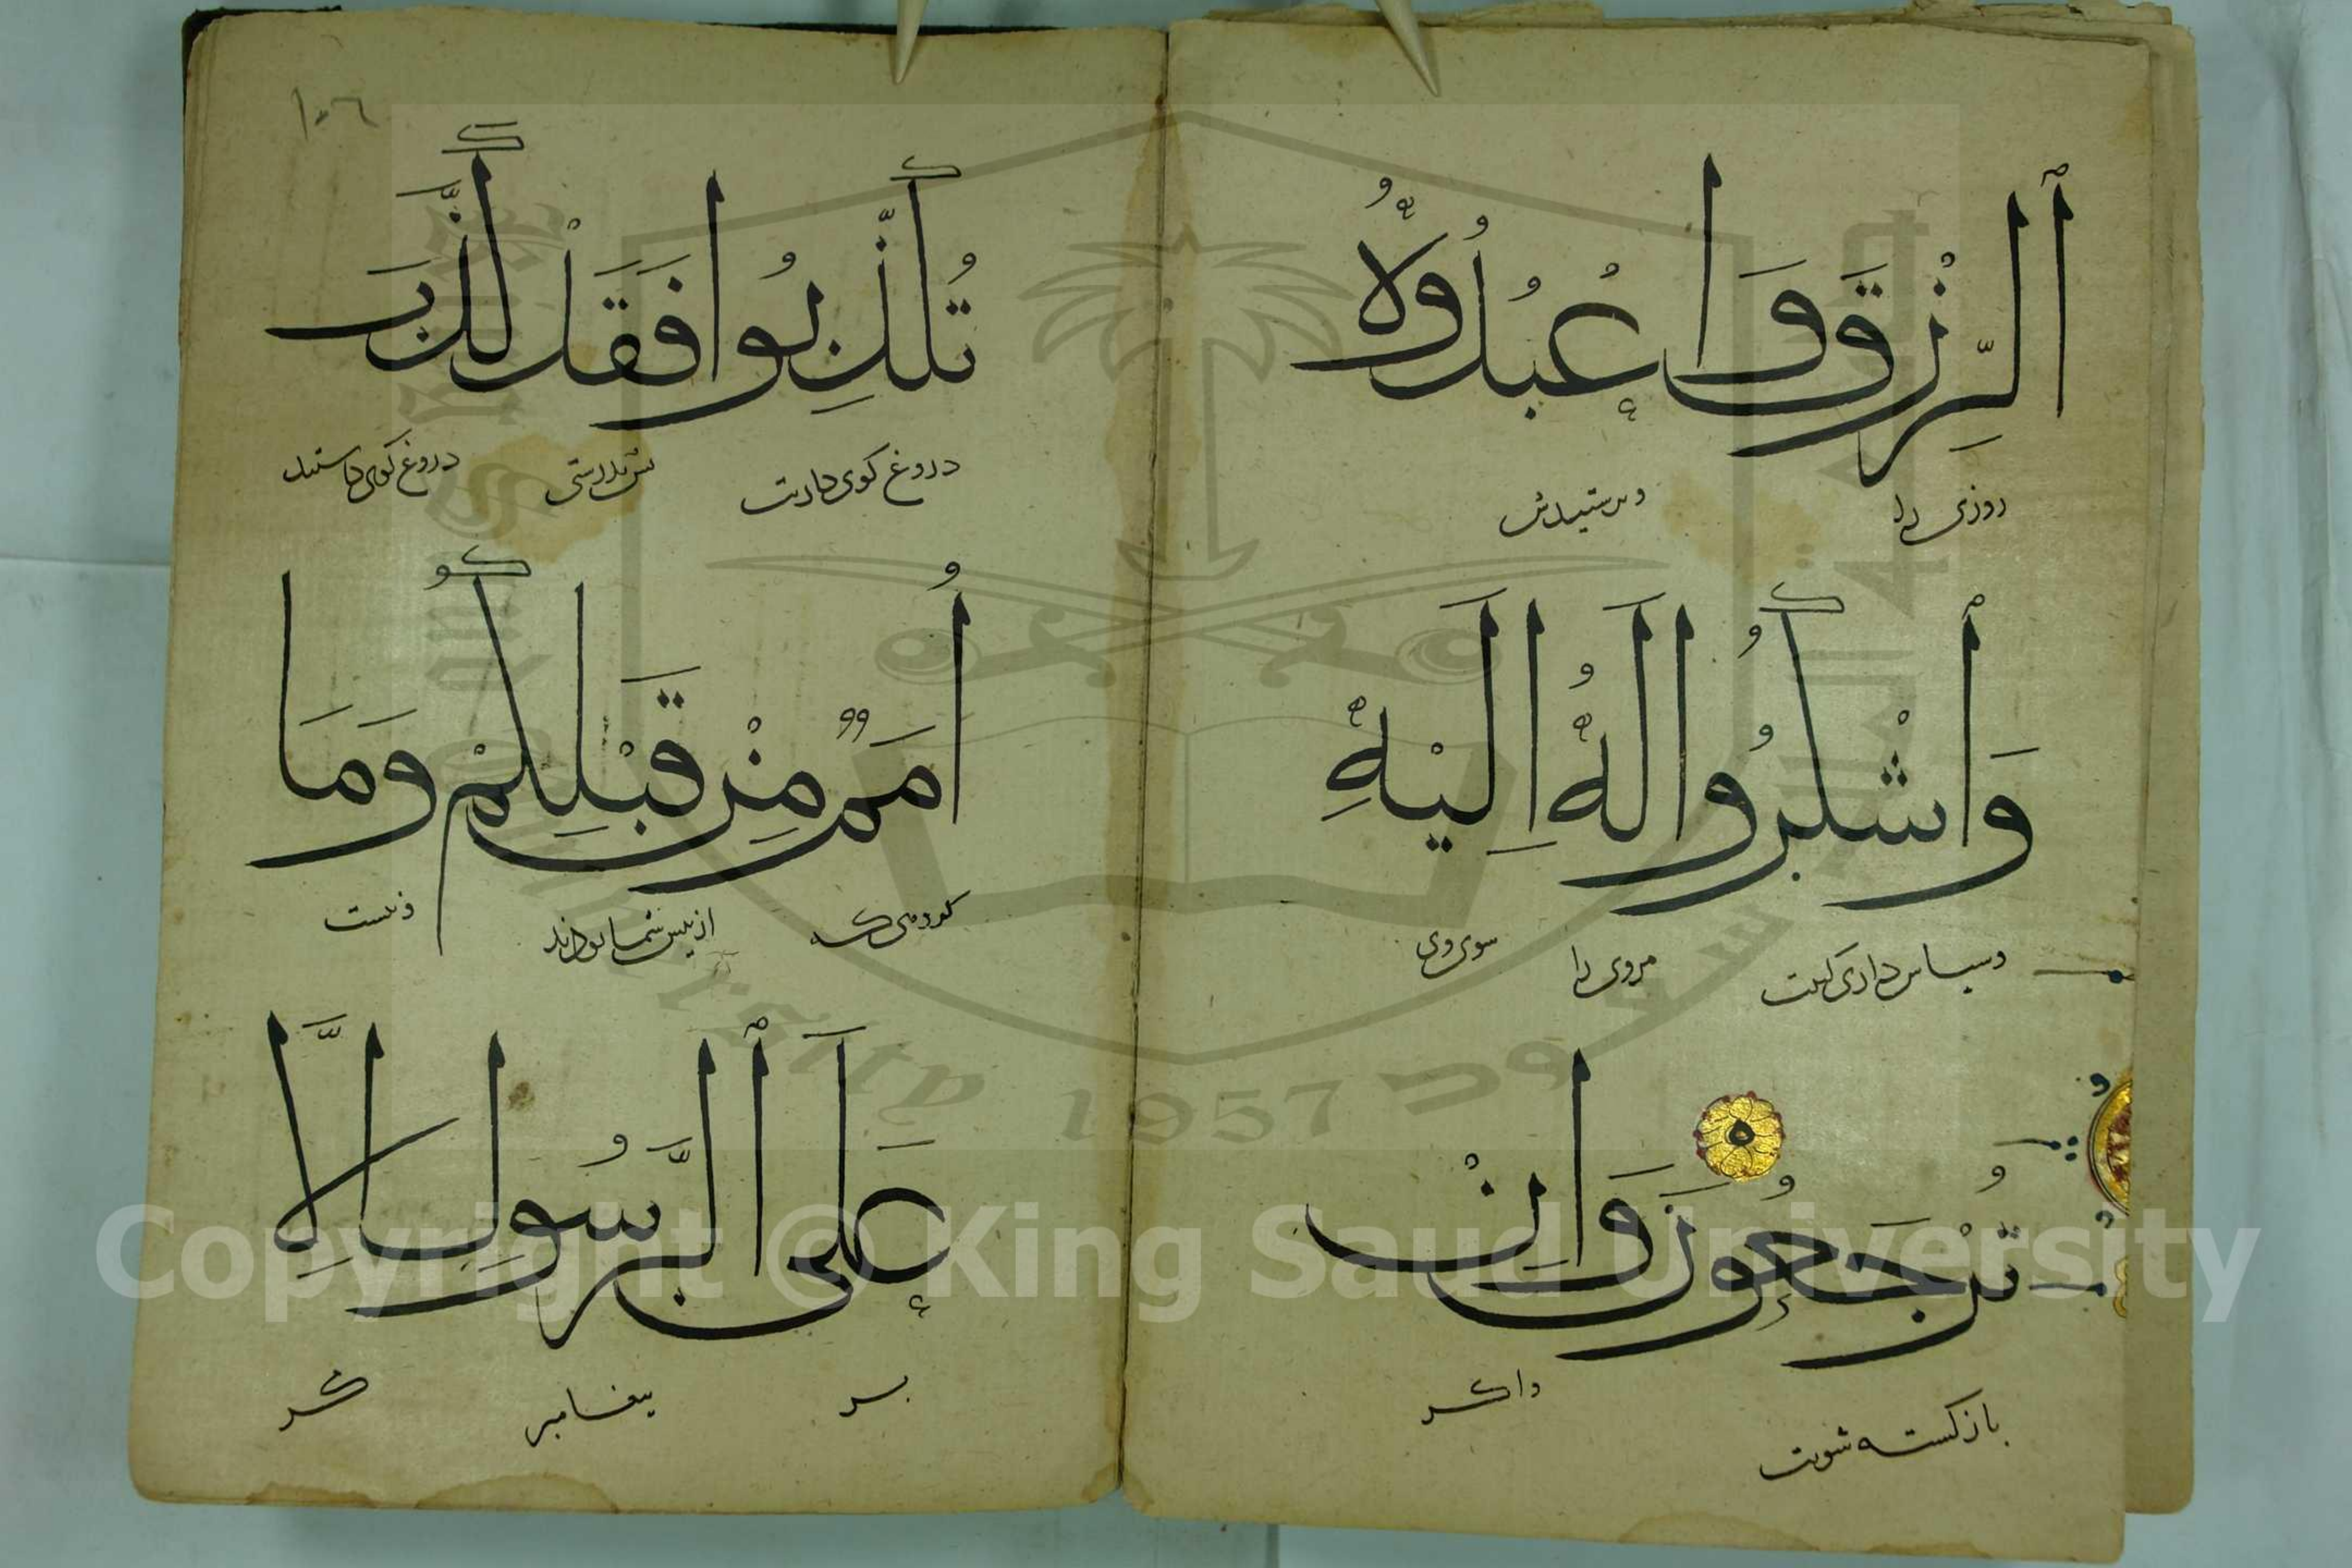 ٱلرِّزْقَ وَاعْبُدُوهُ
روزی را
وپرستیدش
وَٱشْكُرُوا لَهُ إِلَيْهِ
وسپاس داری کنیت
مروی را
سوی وی
تُرْجَعُونَ ٥ وَإِنْ
باز کشته شویت
واکر
١٠٦
تُكَذِّبُوا فَقَدْ كَذَّبَ
دروغ کوی داریت
دروغ کوی داشتند
أُمَمٌ مِنْ قَبْلِكُمْ وَمَا
از پیش شما بودند
ونیست
عَلَى ٱلرَّسُولِ إِلَّا
بر
پیغامبر
مکر
Copyright © King Saud University
1957